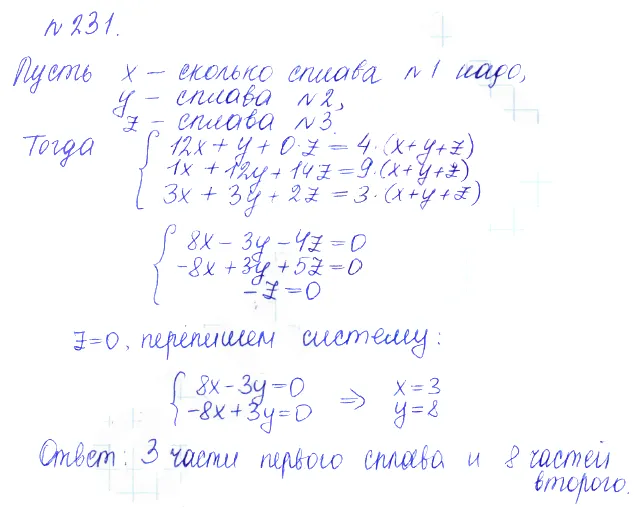 №231.
Пусть x – сколько сплава №1 надо,
y – сплава №2,
z – сплава №3.
Тогда { 12x + y + 0·z = 4·(x+y+z)
1x + 12y + 14z = 9·(x+y+z)
3x + 3y + 2z = 3·(x+y+z)
{ 8x – 3y – 4z = 0
–8x + 3y + 5z = 0
–z = 0
z=0, перепишем систему:
{ 8x – 3y = 0 ⇒ x = 3
–8x + 3y = 0 y = 8
Ответ: 3 части первого сплава и 8 частей
второго.